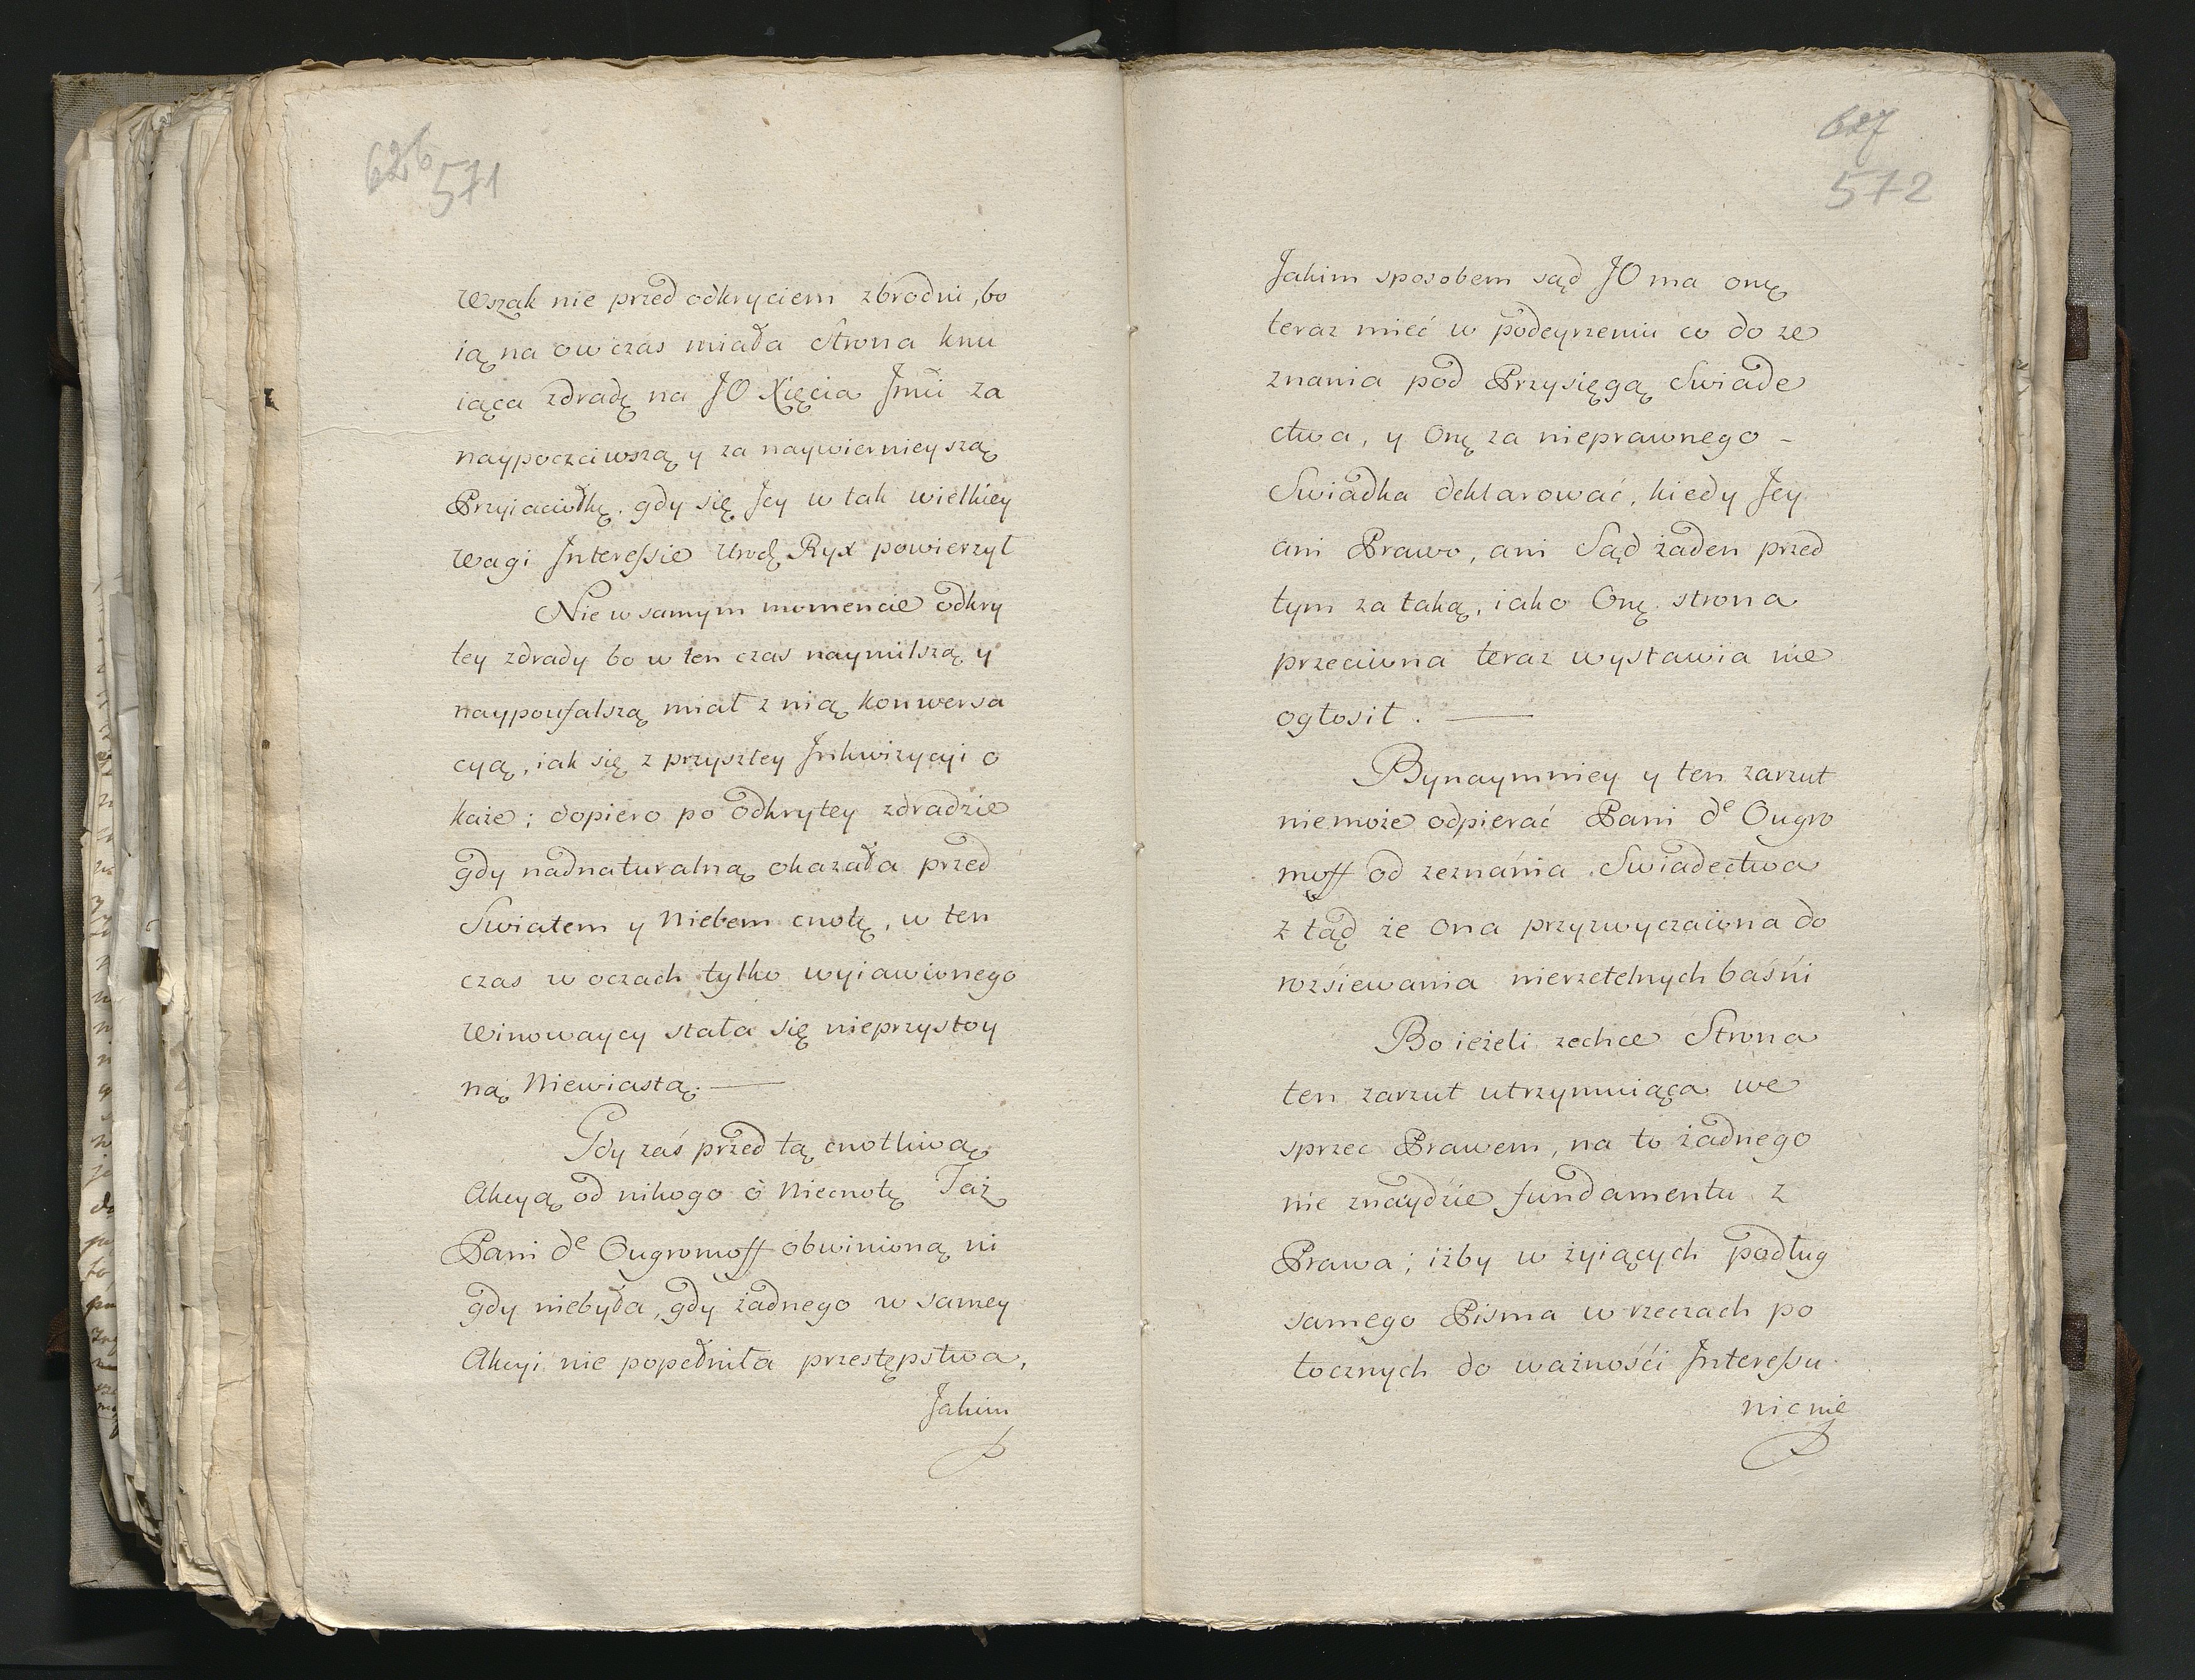 626
571
Wszak nie przed odkryciem zbrodni, bo
ią na ow czas miała Strona knu
iąca zdradę na JO Xięcia Jmći za
naypoczciwszą y za naywiernieyszą
Przyiaciołkę. gdy się Jey w tak wielkiey
wagi Interessie Urodz Ryx powierzył
Nie w samym momencie odkry
tey zdrady bo w ten czas naymilszą y
naypoufalszą miał z nią konwersa
cyą, iak się z przyszłey Inkwizycyi o
każe; dopiero po odkrytey zdradzie
gdy nadnaturalną okazała przed
Swiatem y Niebem cnotę, w ten
czas w oczach tylko wyiawionego
Winowaycy stała się nieprzystoy
ną Niewiastą. —
Gdy zaś przed tą cnotliwą
Akcyą od nikogo o Niecnotę Taż
Pani de Ougrumoff obwinioną ni
gdy niebyła, gdy żadnego w samey
Akcyi nie popełniła przestępstwa,
Jakim
627
572
Jakim sposobem sąd JO ma onę
teraz mieć w podeyrzeniu co do ze
znania pod Przysięgą Swiade
ctwa, y Onę za nieprawnego -
Swiadka deklarować, kiedy Jey
ani Prawo, ani Sąd żaden przed
tym za taką, iako Onę strona
przeciwna teraz wystawia nie
ogłosił. —
Bynaymniey y ten zarzut
niemoże odpierać Pani de Ougro
moff od zeznánia Swiadectwa
z tąd że Ona przyzwyczaiona do
rozśiewania nierzetelnych baśńi
Bo ieżeli zechce Strona
ten zarzut utrzymuiąca we
sprzec Prawem, na to żadnego
nie znaydzie fundamentu z
Prawa; iżby w żyiących podług
samego Pisma w rzeczach po
tocznych do ważnośći Interessu
nic nie